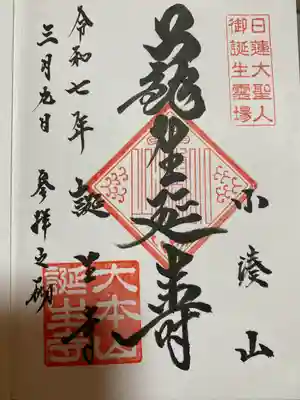 日蓮大聖人
御誕生霊場
小湊山
生延壽
誕生寺
大本山
誕生寺
令和七年
三月九日 参拝之砌